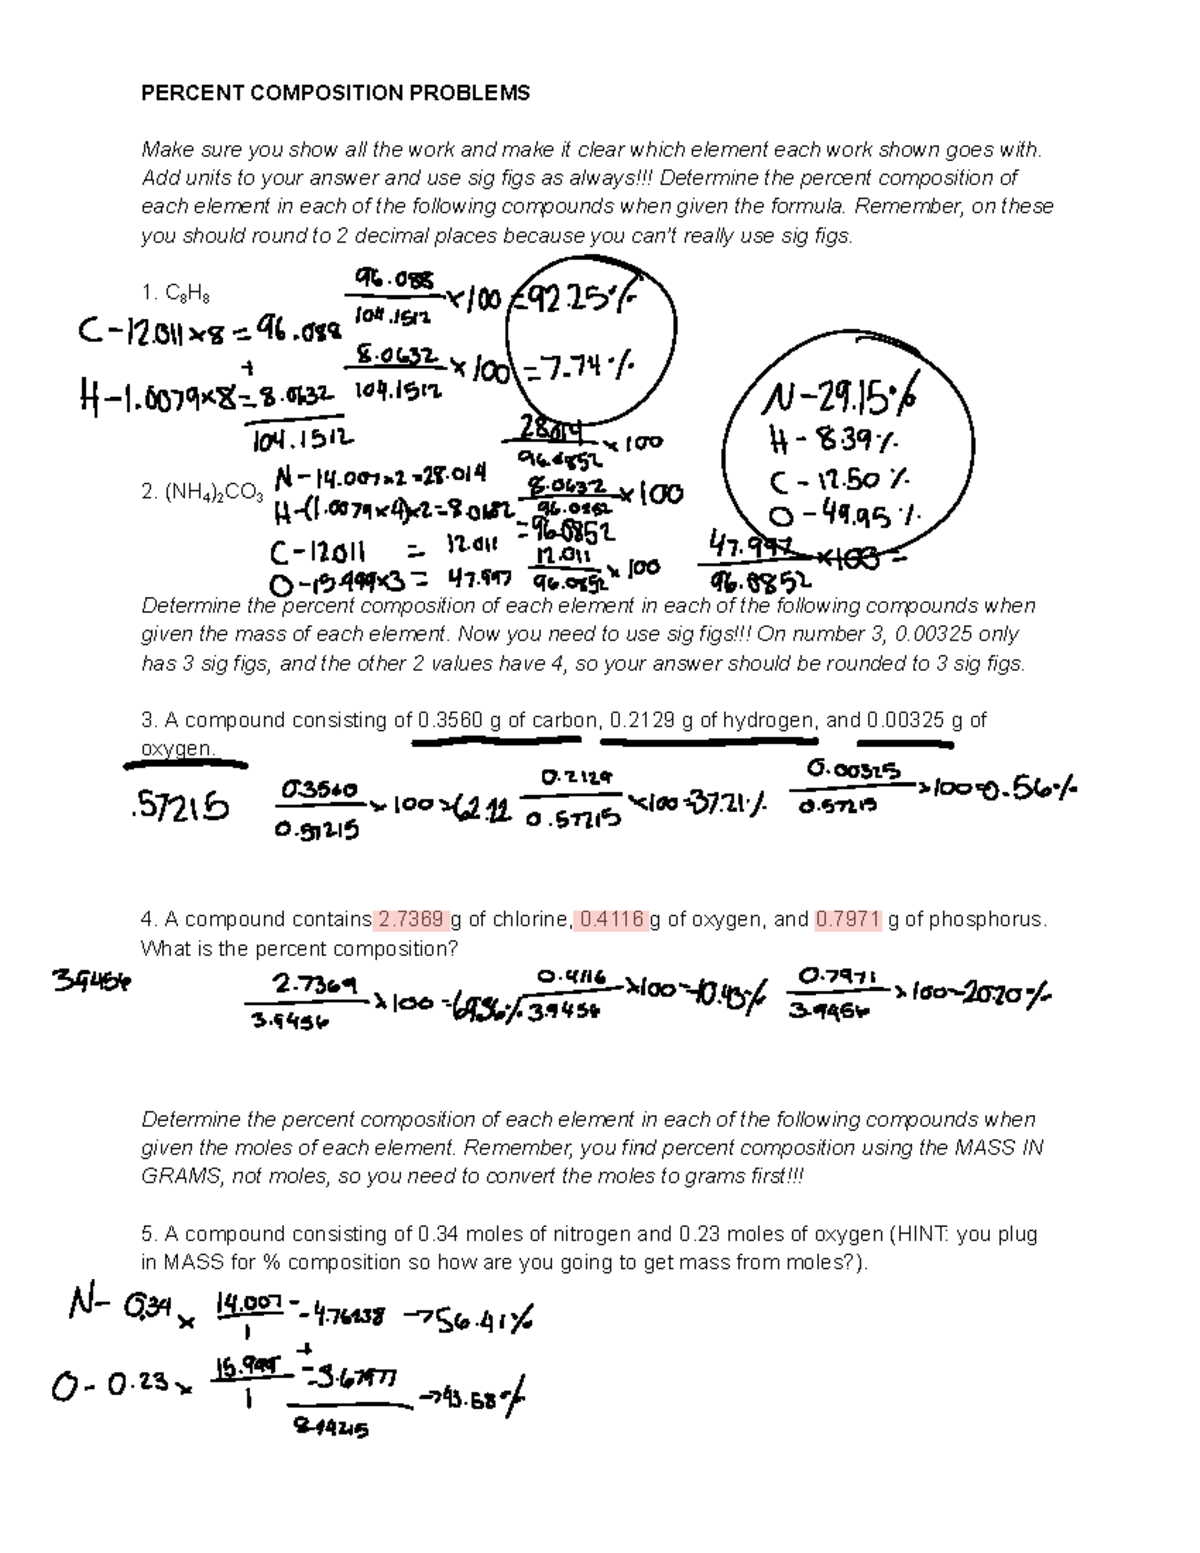 PERCENT COMPOSITION PROBLEMS
Make sure you show all the work and make it clear which element each work shown goes with.
Add units to your answer and use sig figs as always!!! Determine the percent composition of
each element in each of the following compounds when given the formula. Remember, on these
you should round to 2 decimal places because you can't really use sig figs.
1. C8H8
C - 12.011 x 8 = 96.088
+
H - 1.0079 x 8 = 8.0632
104.1512
96.088
104.1512
x 100 = 92.25%
8.0632
104.1512
x 100 = 7.74%
2. (NH4)2CO3
N - 14.007 x 2 = 28.014
H - (1.0079 x 4) x 2 =
C - 12.011 = 12.011
O - 15.999 x 3 = 47.997
= 96.0852
28.014
96.0852
x 100
8.0632
96.0852
x 100
12.011
96.0852
x 100
47.997
96.0852
x 100 =
N - 29.15%
H - 8.39%
C - 12.50%
O - 49.95%
Determine the percent composition of each element in each of the following compounds when
given the mass of each element. Now you need to use sig figs!!! On number 3, 0.00325 only
has 3 sig figs, and the other 2 values have 4, so your answer should be rounded to 3 sig figs.
3. A compound consisting of 0.3560 g of carbon, 0.2129 g of hydrogen, and 0.00325 g of
oxygen.
.57215
0.3560
0.57215
x 100 =
0.2129
0.57215
x 100 = 37.21%
0.00325
0.57215
x 100 = 0.56%
4. A compound contains 2.7369 g of chlorine, 0.4116 g of oxygen, and 0.7971 g of phosphorus.
What is the percent composition?
3.9456
2.7369
3.9456
x 100 = 69.36%
0.4116
3.9456
x 100 = 10.43%
0.7971
3.9456
x 100 = 20.20%
Determine the percent composition of each element in each of the following compounds when
given the moles of each element. Remember, you find percent composition using the MASS IN
GRAMS, not moles, so you need to convert the moles to grams first!!!
5. A compound consisting of 0.34 moles of nitrogen and 0.23 moles of oxygen (HINT: you plug
in MASS for % composition so how are you going to get mass from moles?).
N - 0.34 x
14.007
1
= 4.76238 → 56.41%
+
O - 0.23 x
15.999
1
= 3.67977 → 43.58%